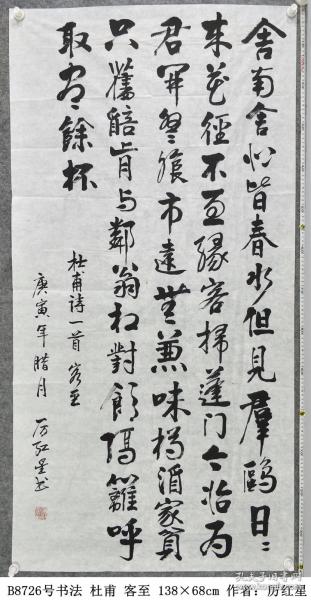 舍南舍北皆春水但見羣鷗日〻
来花徑不曾緣客掃蓬门今始为
君開盤飧市遠無兼味樽酒家貧
只舊醅肯与鄰翁相對飲隔籬呼
取盡餘杯
杜甫诗一首 客至
庚寅年腊月 厉红星书
B8726号书法 杜甫 客至 138×68cm 作者：厉红星